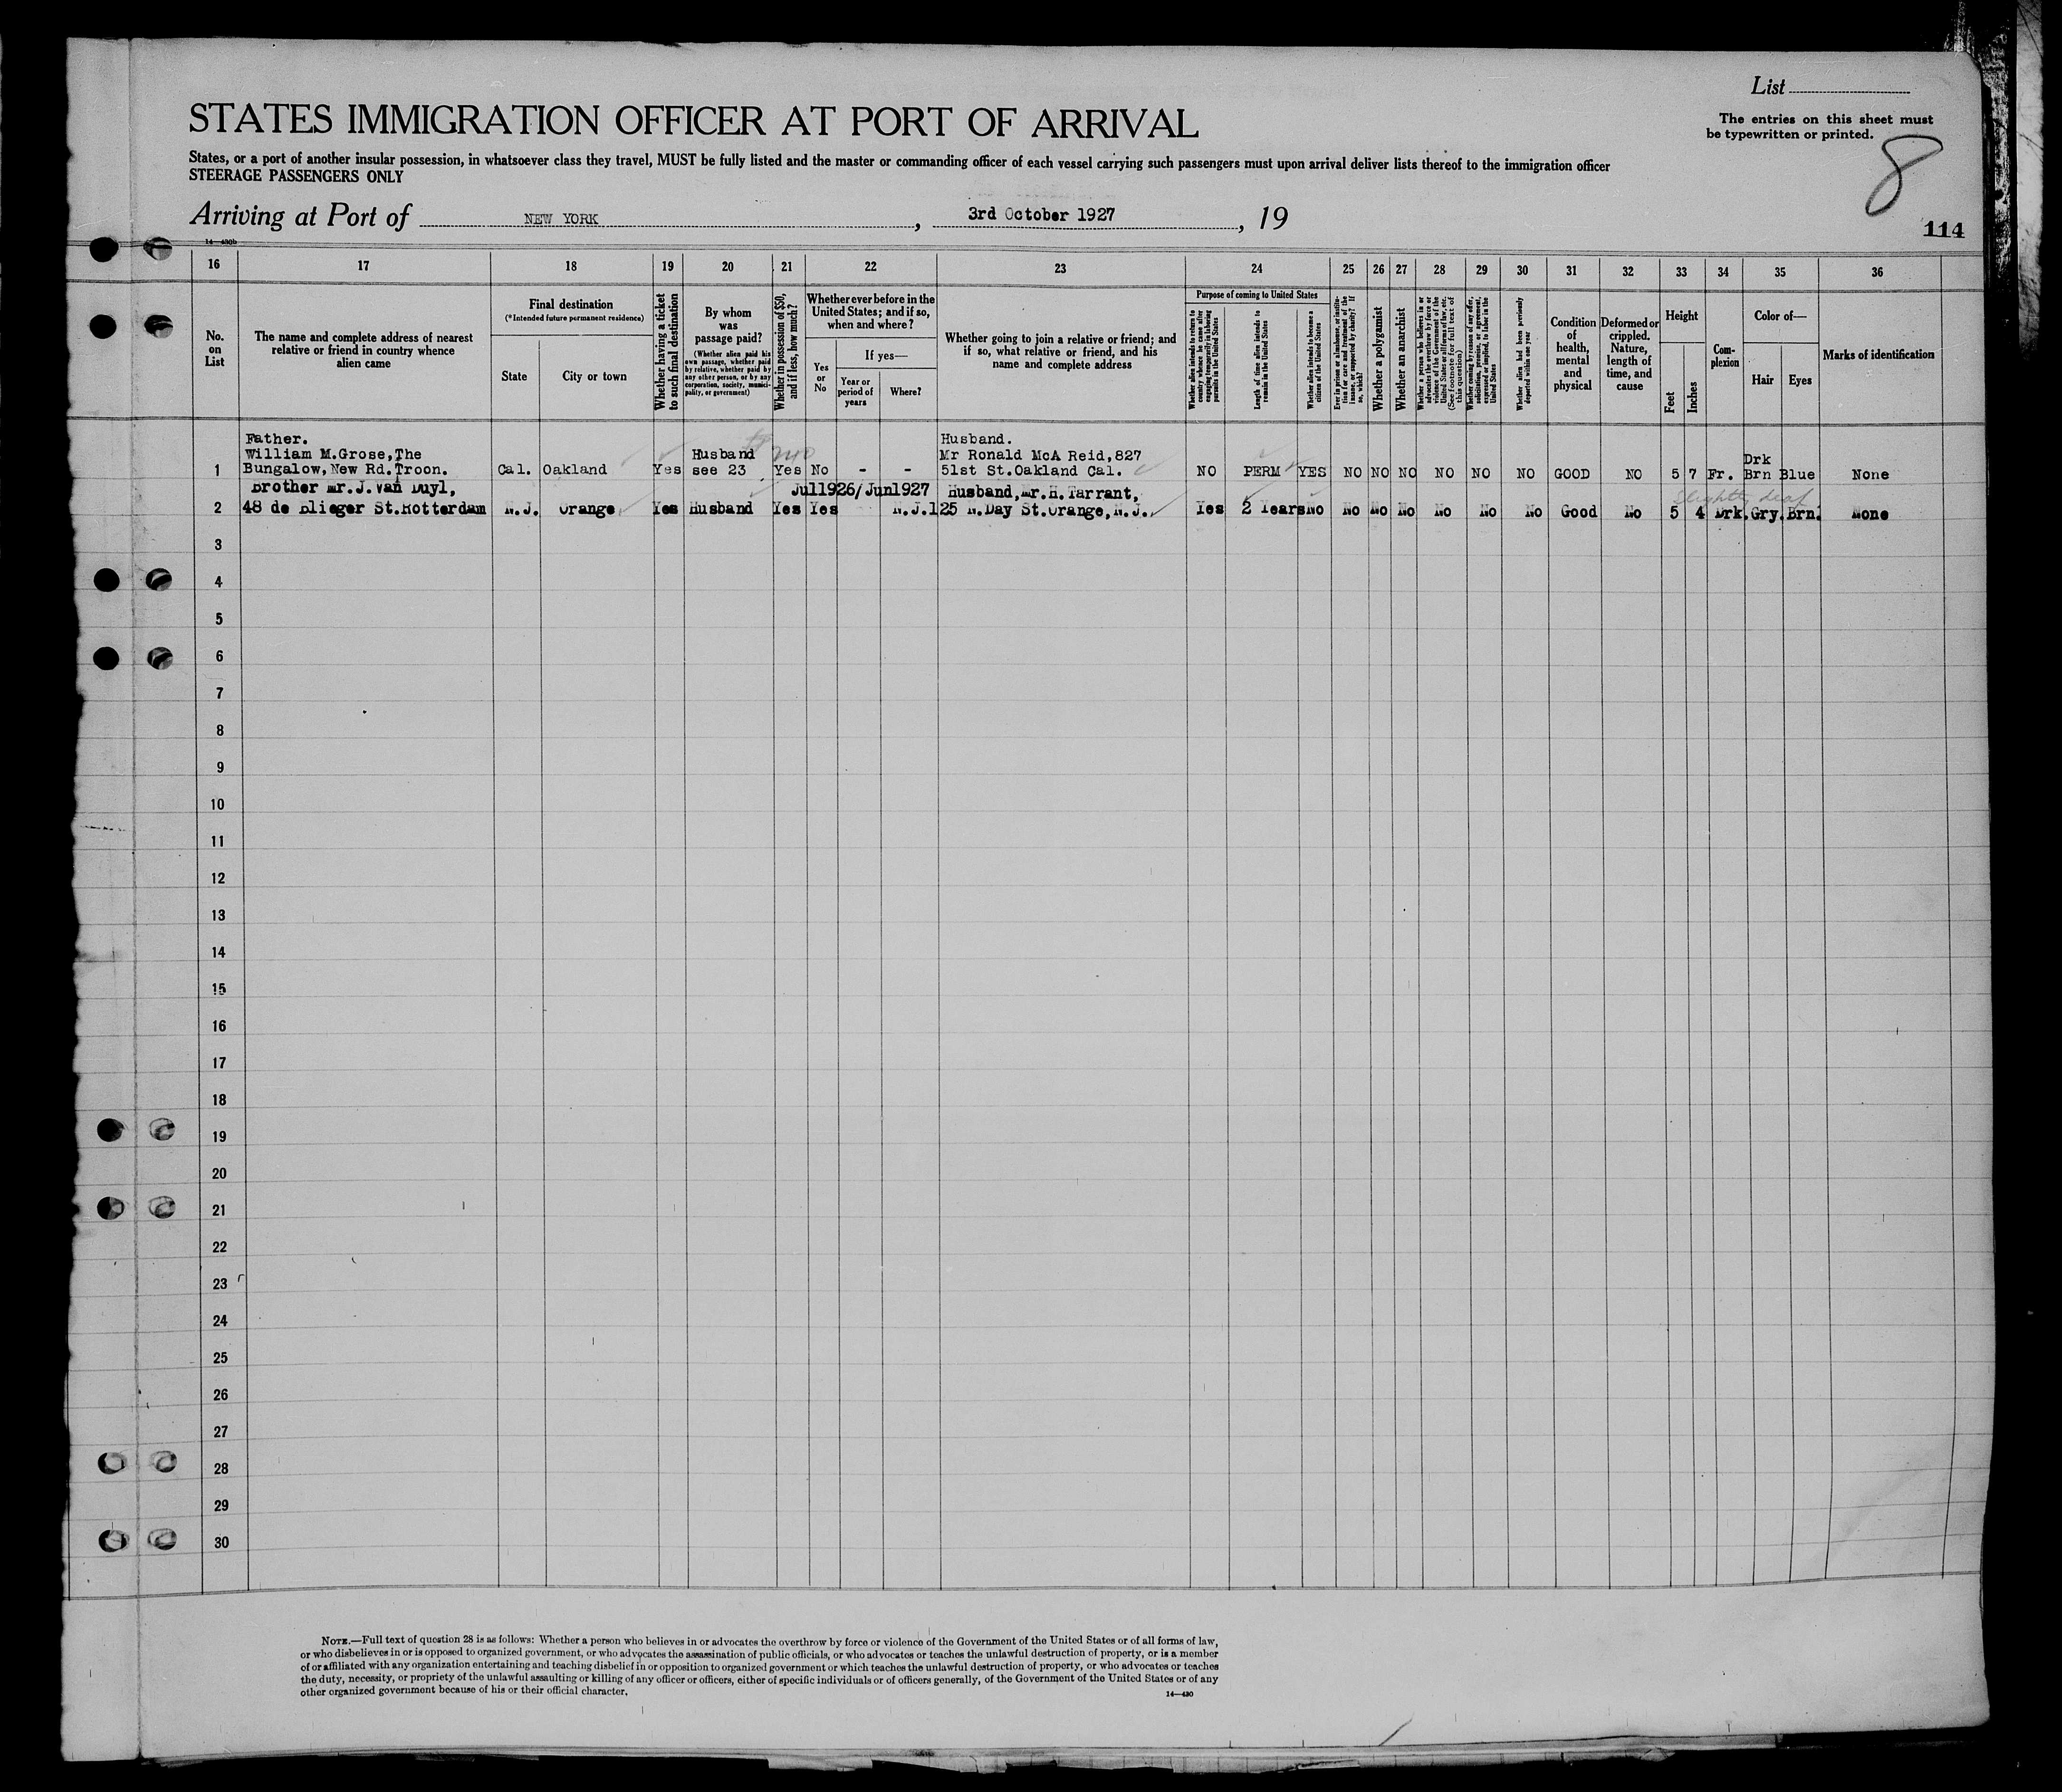 List
STATES IMMIGRATION OFFICER AT PORT OF ARRIVAL
The entries on this sheet must
be typewritten or printed.
States, or a port of another insular possession, in whatsoever class they travel, MUST be fully listed and the master or commanding officer of each vessel carrying such passengers must upon arrival deliver lists thereof to the immigration officer
STEERAGE PASSENGERS ONLY
8
Arriving at Port of NEW YORK, 3rd October 1927, 19
114
14—430b
16 17 18 19 20 21 22 23 24 25 26 27 28 29 30 31 32 33 34 35 36
No.
on
List
The name and complete address of nearest
relative or friend in country whence
alien came
Final destination
(*Intended future permanent residence)
State
City or town
Whether having a ticket
to such final destination
By whom
was
passage paid?
(Whether alien paid his
own passage, whether paid
by relative, whether paid by
any other person, or by any
corporation, society, munici-
pality, or government)
Whether in possession of $50,
and if less, how much?
Whether ever before in the
United States; and if so,
when and where?
Yes
or
No
If yes—
Year or
period of
years
Where?
Whether going to join a relative or friend; and
if so, what relative or friend, and his
name and complete address
Purpose of coming to United States
Whether alien intends to return to
country whence he came after
engaging temporarily in laboring
pursuits in the United States
Length of time alien intends to
remain in the United States
Whether alien intends to become a
citizen of the United States
Ever in prison or almshouse, or institu-
tion for care and treatment of the
insane, or supported by charity? If
so, which?
Whether a polygamist
Whether an anarchist
Whether a person who believes in or
advocates the overthrow by force or
violence of the Government of the
United States or all forms of law, etc.
(See footnote for full text of
this question)
Whether coming by reason of any offer,
solicitation, promise, or agreement,
expressed or implied, to labor in the
United States
Whether alien had been previously
deported within one year
Condition
of
health,
mental
and
physical
Deformed or
crippled.
Nature,
length of
time, and
cause
Height
Feet
Inches
Com-
plexion
Color of—
Hair
Eyes
Marks of identification
Father.
William M.Grose,The
1 Bungalow,New Rd.Troon. Cal. Oakland Yes Husband see 23 Yes No - - Husband.
Mr Ronald McA Reid,827
51st St.Oakland Cal. NO PERM YES NO NO NO NO NO NO GOOD NO 5 7 Fr. Drk Brn Blue None
Brother Mr.J.Van Duyl, Jul1926/Jun1927 Husband,Mr.H.Tarrant, Slightly deaf
2 48 de Blieger St.Rotterdam N.J. Orange Yes Husband Yes Yes N.J. 125 N.Day St.Orange,N.J. Yes 2 Years No No No No No No No Good No 5 4 Drk. Gry. Brn. None
3
4
5
6
7
8
9
10
11
12
13
14
15
16
17
18
19
20
21
22
23
24
25
26
27
28
29
30
NOTE.—Full text of question 28 is as follows: Whether a person who believes in or advocates the overthrow by force or violence of the Government of the United States or of all forms of law,
or who disbelieves in or is opposed to organized government, or who advocates the assassination of public officials, or who advocates or teaches the unlawful destruction of property, or is a member
of or affiliated with any organization entertaining and teaching disbelief in or opposition to organized government or which teaches the unlawful destruction of property, or who advocates or teaches
the duty, necessity, or propriety of the unlawful assaulting or killing of any officer or officers, either of specific individuals or of officers generally, of the Government of the United States or of any
other organized government because of his or their official character.
14—430